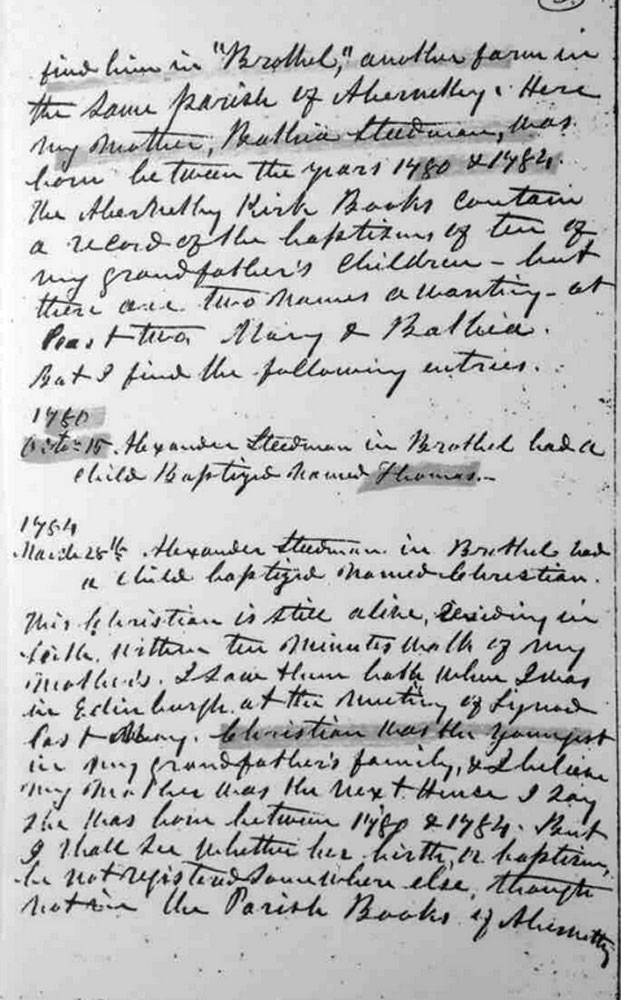 find him in "Brothel," another farm in
the same parish of Abernethy. Here
my mother, Bathia Steedman, was
born between the years 1780 & 1784.
The Abernethy Kirk Books contain
a record of the baptisms of ten of
my grandfather's children - but
there are two names awanting - at
least two Mary & Bathia.
But I find the following entries.
1780
Octr 15. Alexander Steedman in Brothel had a
child Baptized named Thomas.-
1784
March 28th Alexander Steedman in Brothel had
a child baptized named Christian.
This Christian is still alive, residing in
Leith, within ten minutes walk of my
mother's. I saw them both when I was
in Edinburgh at the meeting of Synod
last May. Christian was the youngest
in my grandfather's family, & I believe
my mother was the next. Hence I say
she was born between 1780 & 1784. But
I shall see whether her birth, or baptism,
be not registered somewhere else, though
not in the Parish Books of Abernethy